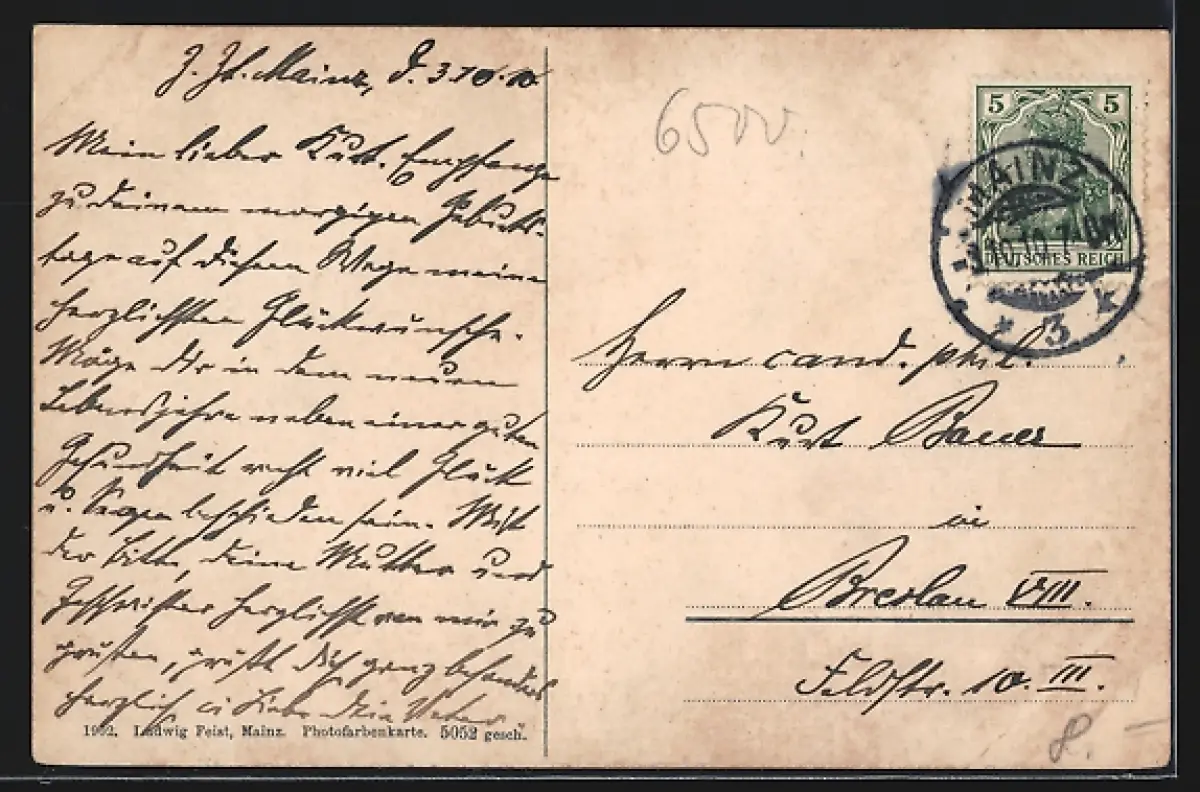 Z. Zt. Mainz, d. 3.10.10.
Mein lieber Kurt. Empfange
zu deinem morgigen Geburts-
tage auf diesem Wege meine
herzlichsten Glückwünsche.
Möge dir in dem neuen
Lebensjahre neben einer guten
Gesundheit recht viel Glück
u. Segen beschieden sein. Mit
der Bitte, deine Mutter und
Geschwister herzlichst von mir zu
grüßen, grüßt dich ganz besonders
herzlich in Liebe Dein Vater
1902. Ludwig Feist, Mainz. Photofarbenkarte. 5052 gesch.
6500
5 5
DEUTSCHES REICH
MAINZ
3.10.10.7-8N
* 3 k
Herrn cand. phil.
Kurt Bauer
in
Breslau VIII.
Feldstr. 10. III.
8.-